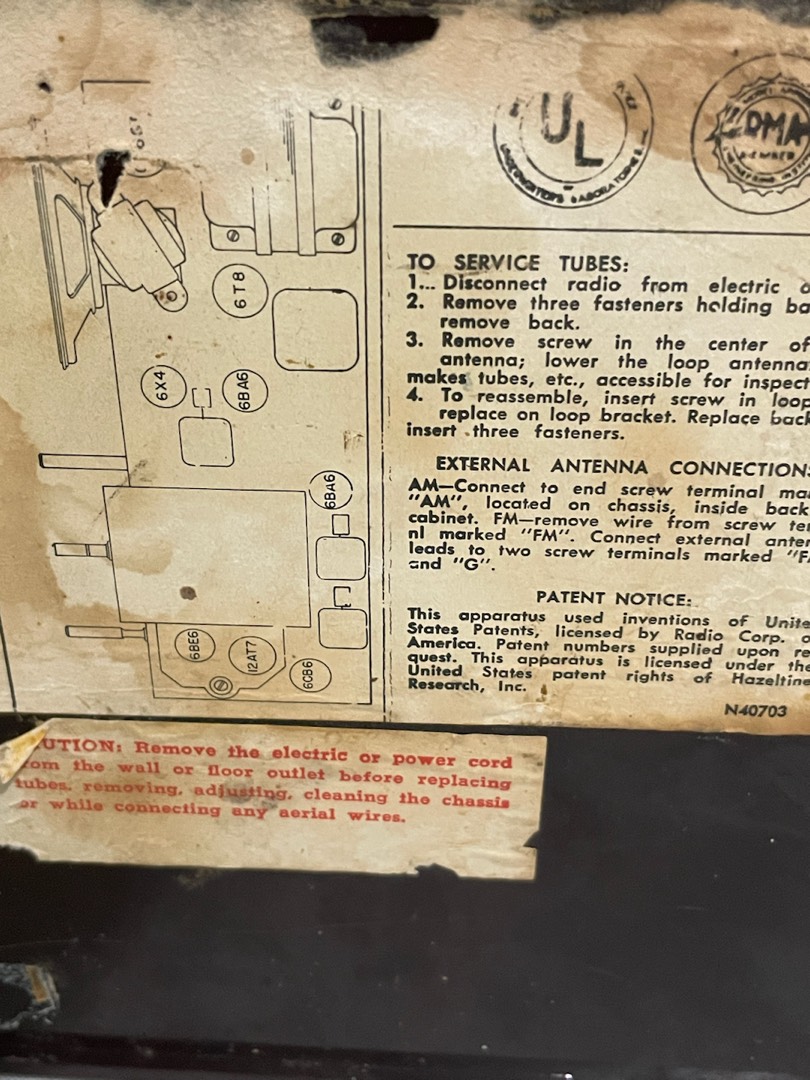 UL
UNDERWRITERS LABORATORIES
MEMBER
6T8
6X4
6BA6
6BA6
6BE6
12AT7
6CB6
TO SERVICE TUBES:
1... Disconnect radio from electric
2. Remove three fasteners holding
remove back.
3. Remove screw in the center of
antenna; lower the loop antenna
makes tubes, etc., accessible for inspect
4. To reassemble, insert screw in loop
replace on loop bracket. Replace back
insert three fasteners.
EXTERNAL ANTENNA CONNECTIONS
AM—Connect to end screw terminal
"AM", located on chassis, inside back
cabinet. FM—remove wire from screw
nl marked "FM". Connect external
leads to two screw terminals marked
and "G".
PATENT NOTICE:
This apparatus used inventions of Unite
States Patents, licensed by Radio Corp.
America. Patent numbers supplied upon re
quest. This apparatus is licensed under the
United States patent rights of Hazeltine
Research, Inc.
N40703
UTION: Remove the electric or power cord
om the wall or floor outlet before replacing
tubes, removing, adjusting, cleaning the chassis
or while connecting any aerial wires.